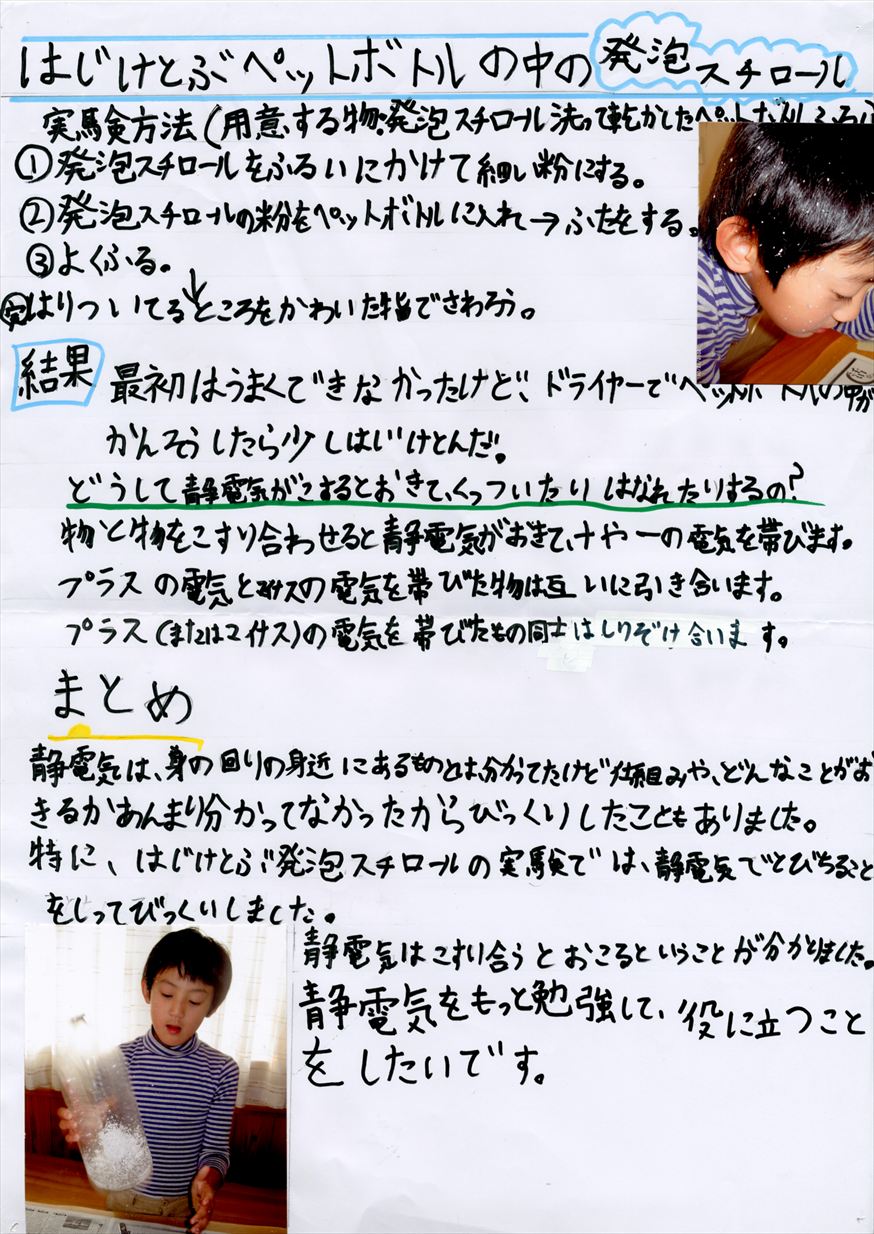 はじけとぶペットボトルの中の発泡スチロール
実験方法(用意する物:発泡スチロール洗って乾かしたペットボトルふるい
①発泡スチロールをふるいにかけて細い粉にする。
②発泡スチロールの粉をペットボトルに入れ→ふたをする。
③よくふる。
はりついてるところをかわいた指でさわろう。
結果 最初はうまくできなかったけど、ドライヤーでペットボトルの中が
かんそうしたら少しはじけとんだ。
どうして静電気がこするとおきて、くっついたりはなれたりするの?
物と物をこすり合わせると静電気がおきて、+や-の電気を帯びます。
プラスの電気とマイナスの電気を帯びた物は互いに引き合います。
プラス(またはマイナス)の電気を帯びたもの同士はしりぞけ合います。
まとめ
静電気は、身の回りの身近にあるものとは、分かってたけど仕組みや、どんなことがお
きるかあんまり分かってなかったからびっくりしたこともありました。
特に、はじけとぶ発泡スチロールの実験では、静電気でとびちること
をしってびっくりしました。
静電気はこすり合うとおこるということが分かりました。
静電気をもっと勉強して、役に立つこと
をしたいです。